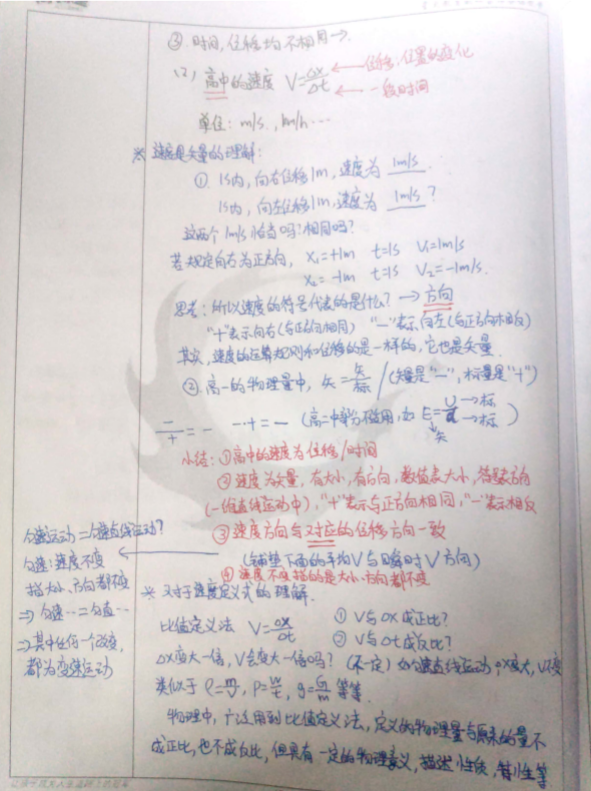 ③ 时间,位移均不相同→.
(2) 高中的速度 V=Δx/Δt ←位移:位置的变化
←一段时间
单位: m/s, km/h …
※ 速度是矢量的理解:
① 1s内,向右位移1m,速度为 1m/s.
1s内,向左位移1m,速度为 1m/s?
这两个1m/s 相同吗?
若规定向右为正方向, X₁=+1m t=1s V₁=1m/s
X₂=-1m t=1s V₂=-1m/s.
思考:所以速度的符号代表的是什么?→方向
"+"表示向右(与正方向相同) "-"表示向左(与正方向相反)
其次,速度的运算规则和位移的是一样的,它也是矢量.
② 高一的物理量中, 矢=矢/标 (矢量是"-",标量是"+")
-/+=- -·+=- (高二中部分不适用,如 E=U/d →标 →标)
↓矢
小结:①高中的速度为位移/时间
②速度为矢量,有大小,有方向,数值表大小,符号表方向
(一维直线运动中),"+"表示与正方向相同,"-"表示相反
③速度方向与对应的位移方向一致
(铺垫下面的平均V与瞬时V方向)
④速度不变指的是大小、方向都不变
匀速运动=匀速直线运动?
匀速:速度不变
指大小、方向都不变
⇒匀速…=匀直…
⇒其中任何一个改变,
都为变速运动
※ 对于速度定义式的理解.
比值定义法 V=Δx/Δt ① V与Δx成正比?
② V与Δt成反比?
Δx变大一倍,V会变大一倍吗?(不一定)如匀速直线运动,Δx变大,V不变
类似于 ρ=m/V, P=W/t, g=G/m 等等.
物理中,广泛用到比值定义法,定义的物理量与原来的量不
成正比,也不成反比,但具有一定的物理意义,描述性质,特性等.